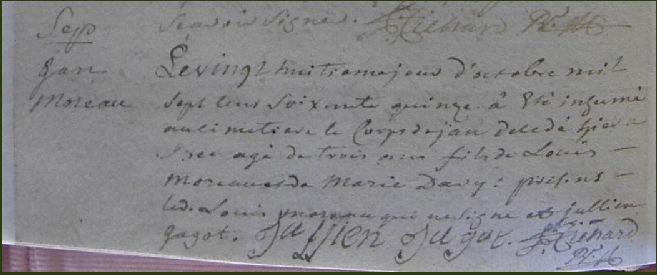 Sep
scavoir signer. J. Richard Ptre
jan
Moreau
Le vingt huitieme jour d'octobre mil
sept cens soixente quinze a été inhumé
au cimetiere le Corps de jan decedé hier a
agé de trois ans fils de Louis
Moreau et de Marie Davy : presens
led. Louis moreau qui ne signe et jullien
gagot. jullien gagot. J. Richard